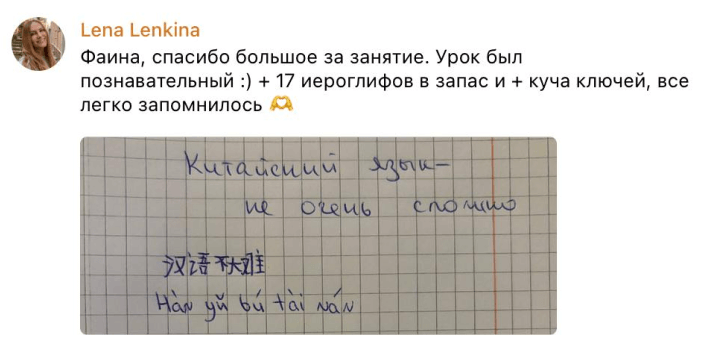 Lena Lenkina
Фаина, спасибо большое за занятие. Урок был
познавательный :) + 17 иероглифов в запас и + куча ключей, все
легко запомнилось 🫶
Китайский язык—
не очень сложно
汉语不太难
Hàn yǔ bú tài nán